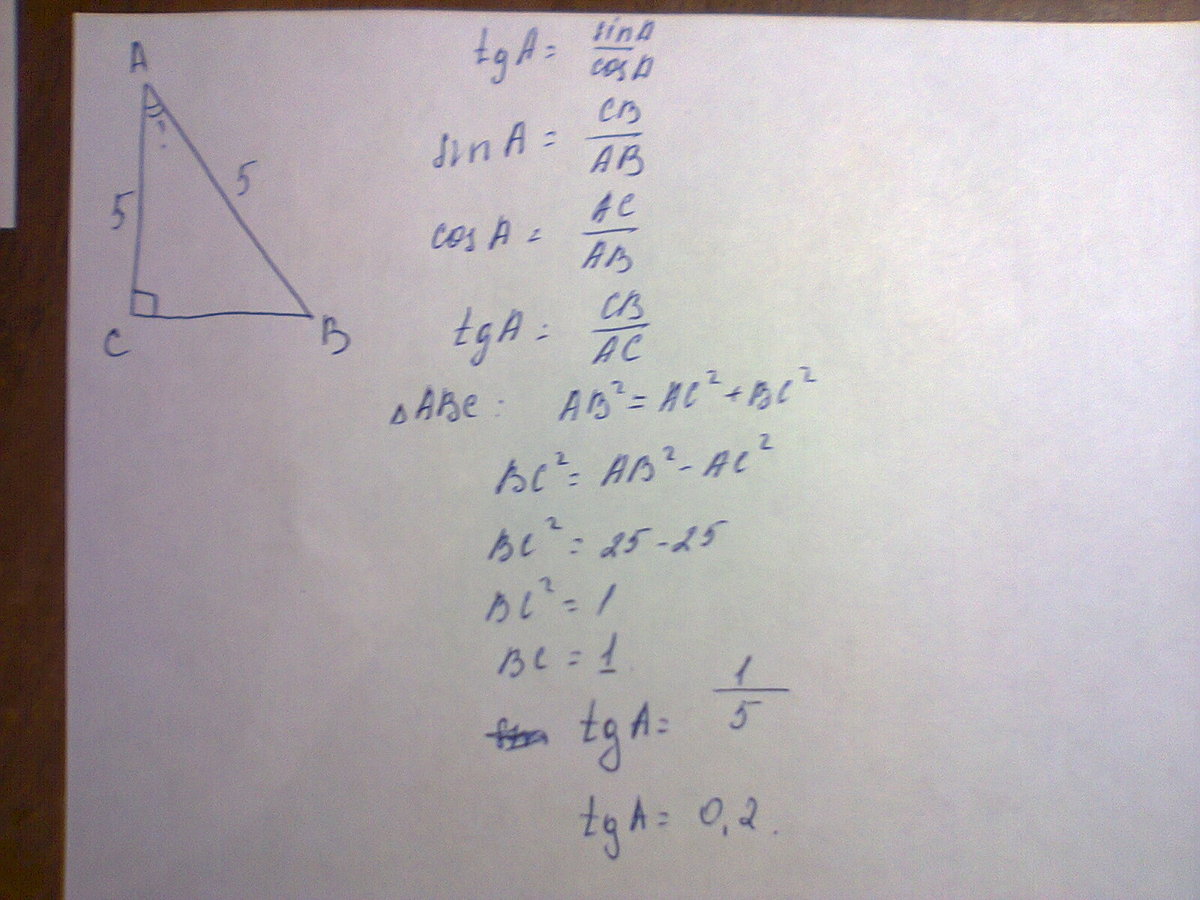 A
5
5
?
C
B
tg A = sin A / cos A
sin A = CB / AB
cos A = AC / AB
tg A = CB / AC
△ABC: AB² = AC² + BC²
BC² = AB² - AC²
BC² = 25 - 25
BC² = 1
BC = 1
tg A = 1 / 5
tg A = 0,2.